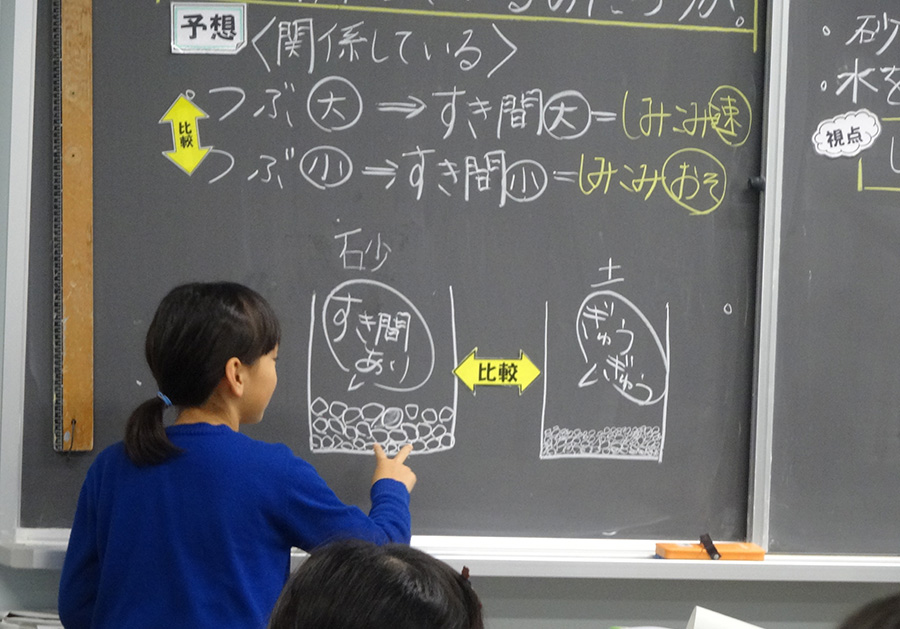 予想
〈関係している〉
つぶ大⇒すき間大=しみこみ速
比較
つぶ小⇒すき間小=しみこみおそ
砂
すき間
あり
比較
土
ぎゅう
ぎゅう
・砂
・水を
視点
し